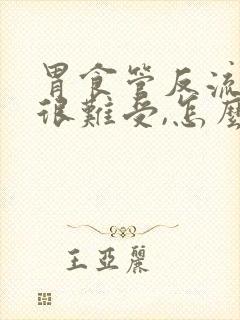 胃食管反流
很難受,怎麼
王亞麗